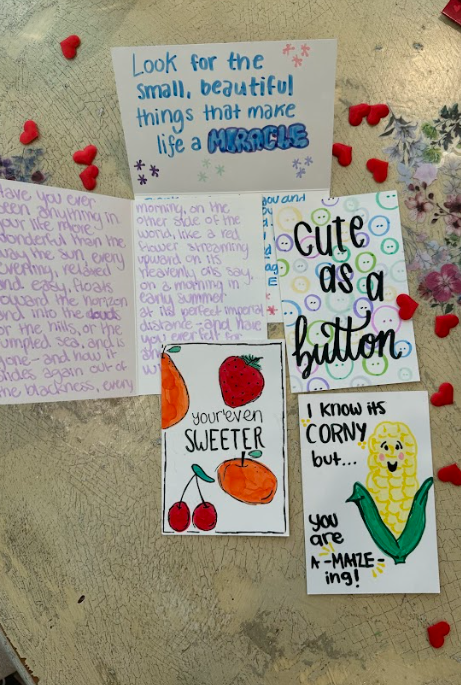 Look for the
small, beautiful
things that make
life a MIRACLE
Have you ever
seen anything in
your life more
wonderful than the
way the sun, every
evening, relaxed
and easy, floats
toward the horizon
and into the clouds
or the hills, or the
rumpled sea, and is
gone—and how it
slides again out of
the blackness, every
morning, on the
other side of the
world, like a red
flower streaming
upward on its
heavenly oils, say,
on a morning in
early summer
at its perfect imperial
distance—and have
you ever felt for
you and
cute
as a
button
your even
SWEETER
I know its
CORNY
but...
you
are
A-MAIZE-
ing!